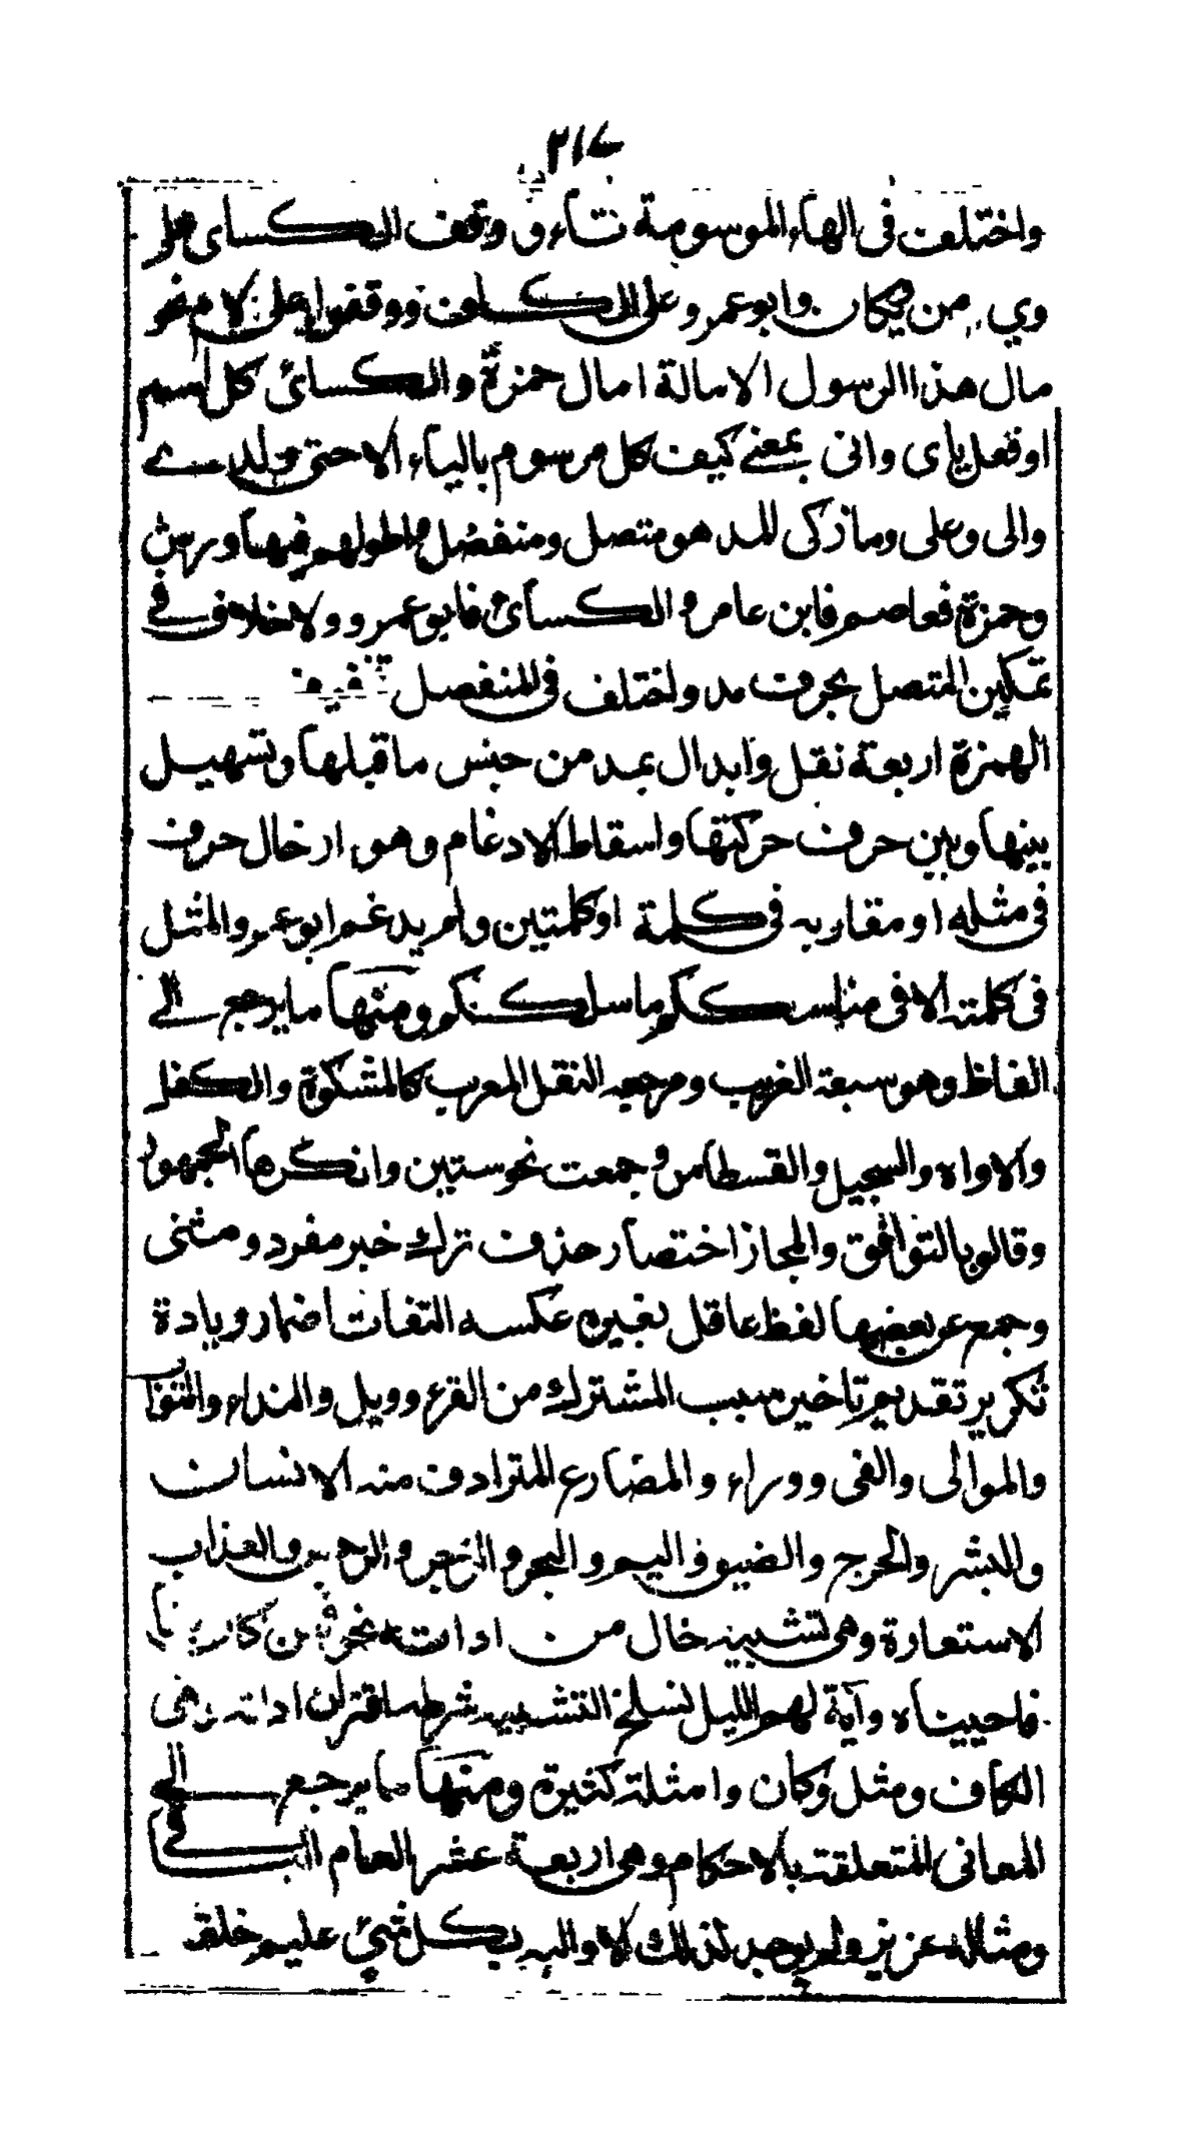 ٢١٧
واختلف فى الهاء الموسومة تاء و وقف الكساى على
وي من ويكان وابو عمرو على الكاف ووقفوا على لام نحو
مال هذا الرسول الامالة امال حمزة والكسائ كل اسم
او فعل ياى وانى بمعنے كيف كل مرسوم بالياء الا حتى ولدے
والى وعلى وما زكى المد هو متصل ومنفصل واطولهم فيها ورش
وحمزة فعاصم فابن عامر و الكسائ فابو عمرو ولا خلاف فے
تمكين المتصل بحرف مد واختلف فى المنفصل
الهمزة اربعة نقل وابدال بمد من جنس ماقبلها وتسهيل
بينها وبين حرف حركتها واسقاط الادغام وهو ادخال حرف
فى مثله او مقاربه فى كلمة او كلمتين ولم يدغم ابو عمرو المثل
فى كلمته الا فى مناسككم ما سلككم ومنها ما يرجع الے
الفاظ وهو سبعة الغريب ومرجعه النقل المعرب كالمشكوة والكفل
والاواه والسجيل والقسطاس و جمعت نحو ستين وانكرها الجمهور
وقالو بالتوافق والمجاز اختصار حذف ترك خبر مفرد ومثنى
وجمع عن بعضها لفظ عاقل لغيره عكسه التفات اضمار ويادة
تكرير تقديم تاخير سبب المشترك من القرء وويل والنداء والتواب
والموالى والغى ووراء والمضارع المترادف منه الانسان
وللبشر والحرج والضيق واليم والبحر و الرجز و الرجس والعذاب
الاستعارة وهى تشبيه خال من اداته نحو من كان ميتا
فاحييناه وآية لهم الليل نسلخ التشبيه شرطه اقتران اداته وهى
الكاف ومثل وكان وامثلته كثيرة ومنها ما يرجع الے
المعانى المتعلقة بالاحكام وهى اربعة عشر العام الباقے
ومثاله عزيز ولم يوجد لذلك الا والله بكل شئ عليم خلقكم